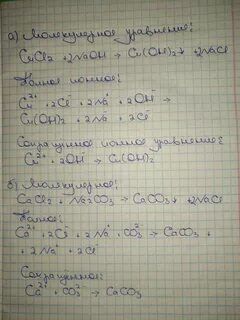 а) Молекулярное уравнение:
CuCl2 + 2NaOH → Cu(OH)2↓ + 2NaCl
Полное ионное:
Cu²⁺ + 2Cl⁻ + 2Na⁺ + 2OH⁻ →
Cu(OH)2 + 2Na⁺ + 2Cl⁻
Сокращенное ионное уравнение:
Cu²⁺ + 2OH⁻ → Cu(OH)2
б) Молекулярное:
CaCl2 + Na2CO3 → CaCO3↓ + 2NaCl
Полное:
Ca²⁺ + 2Cl⁻ + 2Na⁺ + CO3²⁻ → CaCO3 +
+ 2Na⁺ + 2Cl⁻
Сокращенное:
Ca²⁺ + CO3²⁻ → CaCO3